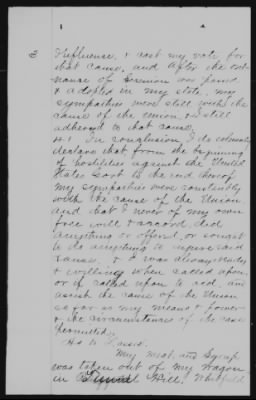 3
influence, & cast my vote for
that cause, and after the ordi-
nance of Secession was passed
& adopted in my state, my
sympathies were still with the
cause of the Union & still
adhered to that cause.
41 In conclusion I do solemnly
declare that from the beginning
of hostilities against the United
States Govt to the end thereof
my sympathies were constantly
with the cause of the Union.
and that I never of my own
free will & accord did
anything or offered or sought
to do anything to injure said
cause, & I was always ready
& willing when called upon.
or if called upon to aid. and
assist the cause of the Union
so far as my means & power
& the circumstances of the case
permitted.
My meat, and Syrup
was taken out of my wagon
in Hill, Whitfield